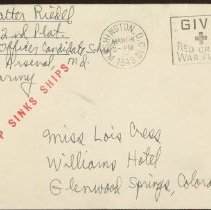 atter Riedel
2nd Plat.
Officer Candidate Sch
Arsenal, Md.
army
WASHINGTON, D.C.
MAR
PM
1943
GIV
RED CR
WAR F
P SINKS SHIPS
Miss Lois Cress
Williams Hotel
Glenwood Springs, Colora